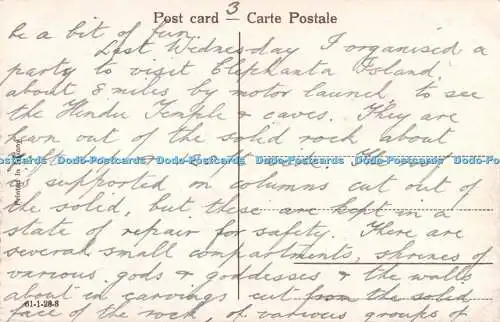 3
Post card — Carte Postale
be a bit of fun.
Last Wednesday I organised a
party to visit Elephanta Island,
about 8 miles by motor launch, to see
the Hindu Temple & caves. They are
hewn out of the solid rock about
Dodo-Postcards Dodo-Postcards Dodo-Postcards Dodo-Postcards Dodo-Postcards
is supported on columns cut out of
the solid, but these are kept in a
state of repair for safety. There are
several small compartments, shrines of
various gods & goddesses & the walls
about in carvings cut from the solid
face of the rock, of various groups of
Printed in
61-1-28-8